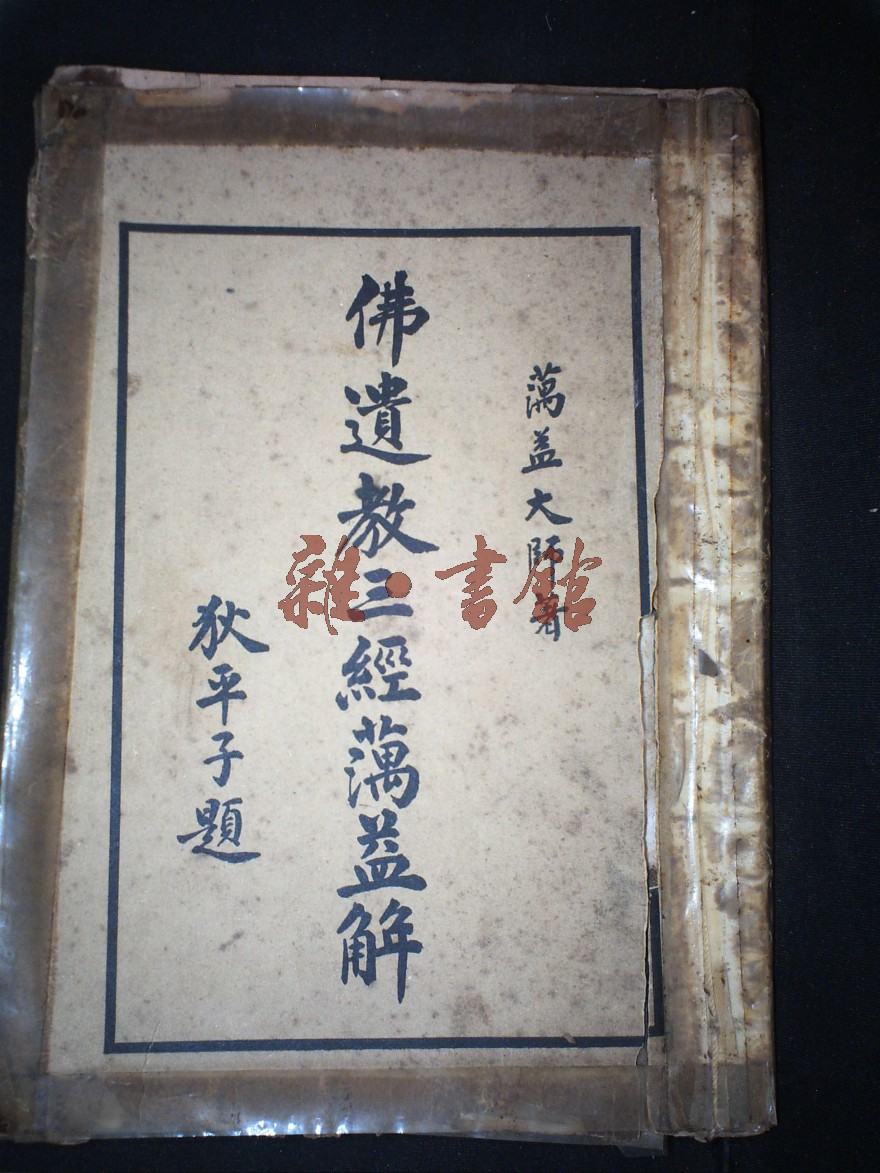 蕅益大師著
佛遺教三經蕅益解
狄平子題
雜·書館